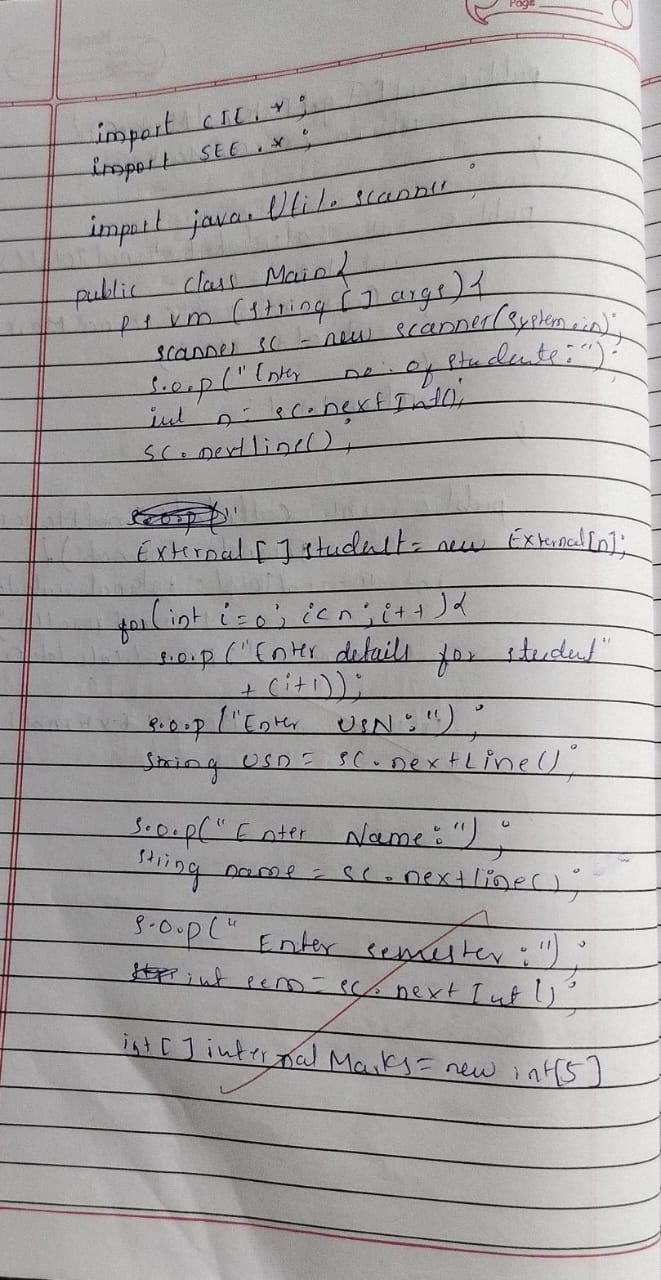 Page
import CIE.*;
import SEE.*;
import java.Util.scanner;
public class Main{
psvm (string [] args){
scanner sc = new scanner(system.in);
S.o.p("Enter no. of students:");
int n = sc.nextInt();
sc.nextline();
External [] student = new External[n];
for(int i=0; i<n; i++){
s.o.p("Enter details for student"
+ (i+1));
s.o.p("Enter USN:");
String usn = sc.nextLine();
S.o.p("Enter Name:");
string name = sc.nextline();
s.o.p("Enter semester:");
int sem = sc.nextInt();
int [] internal Marks = new int[5]